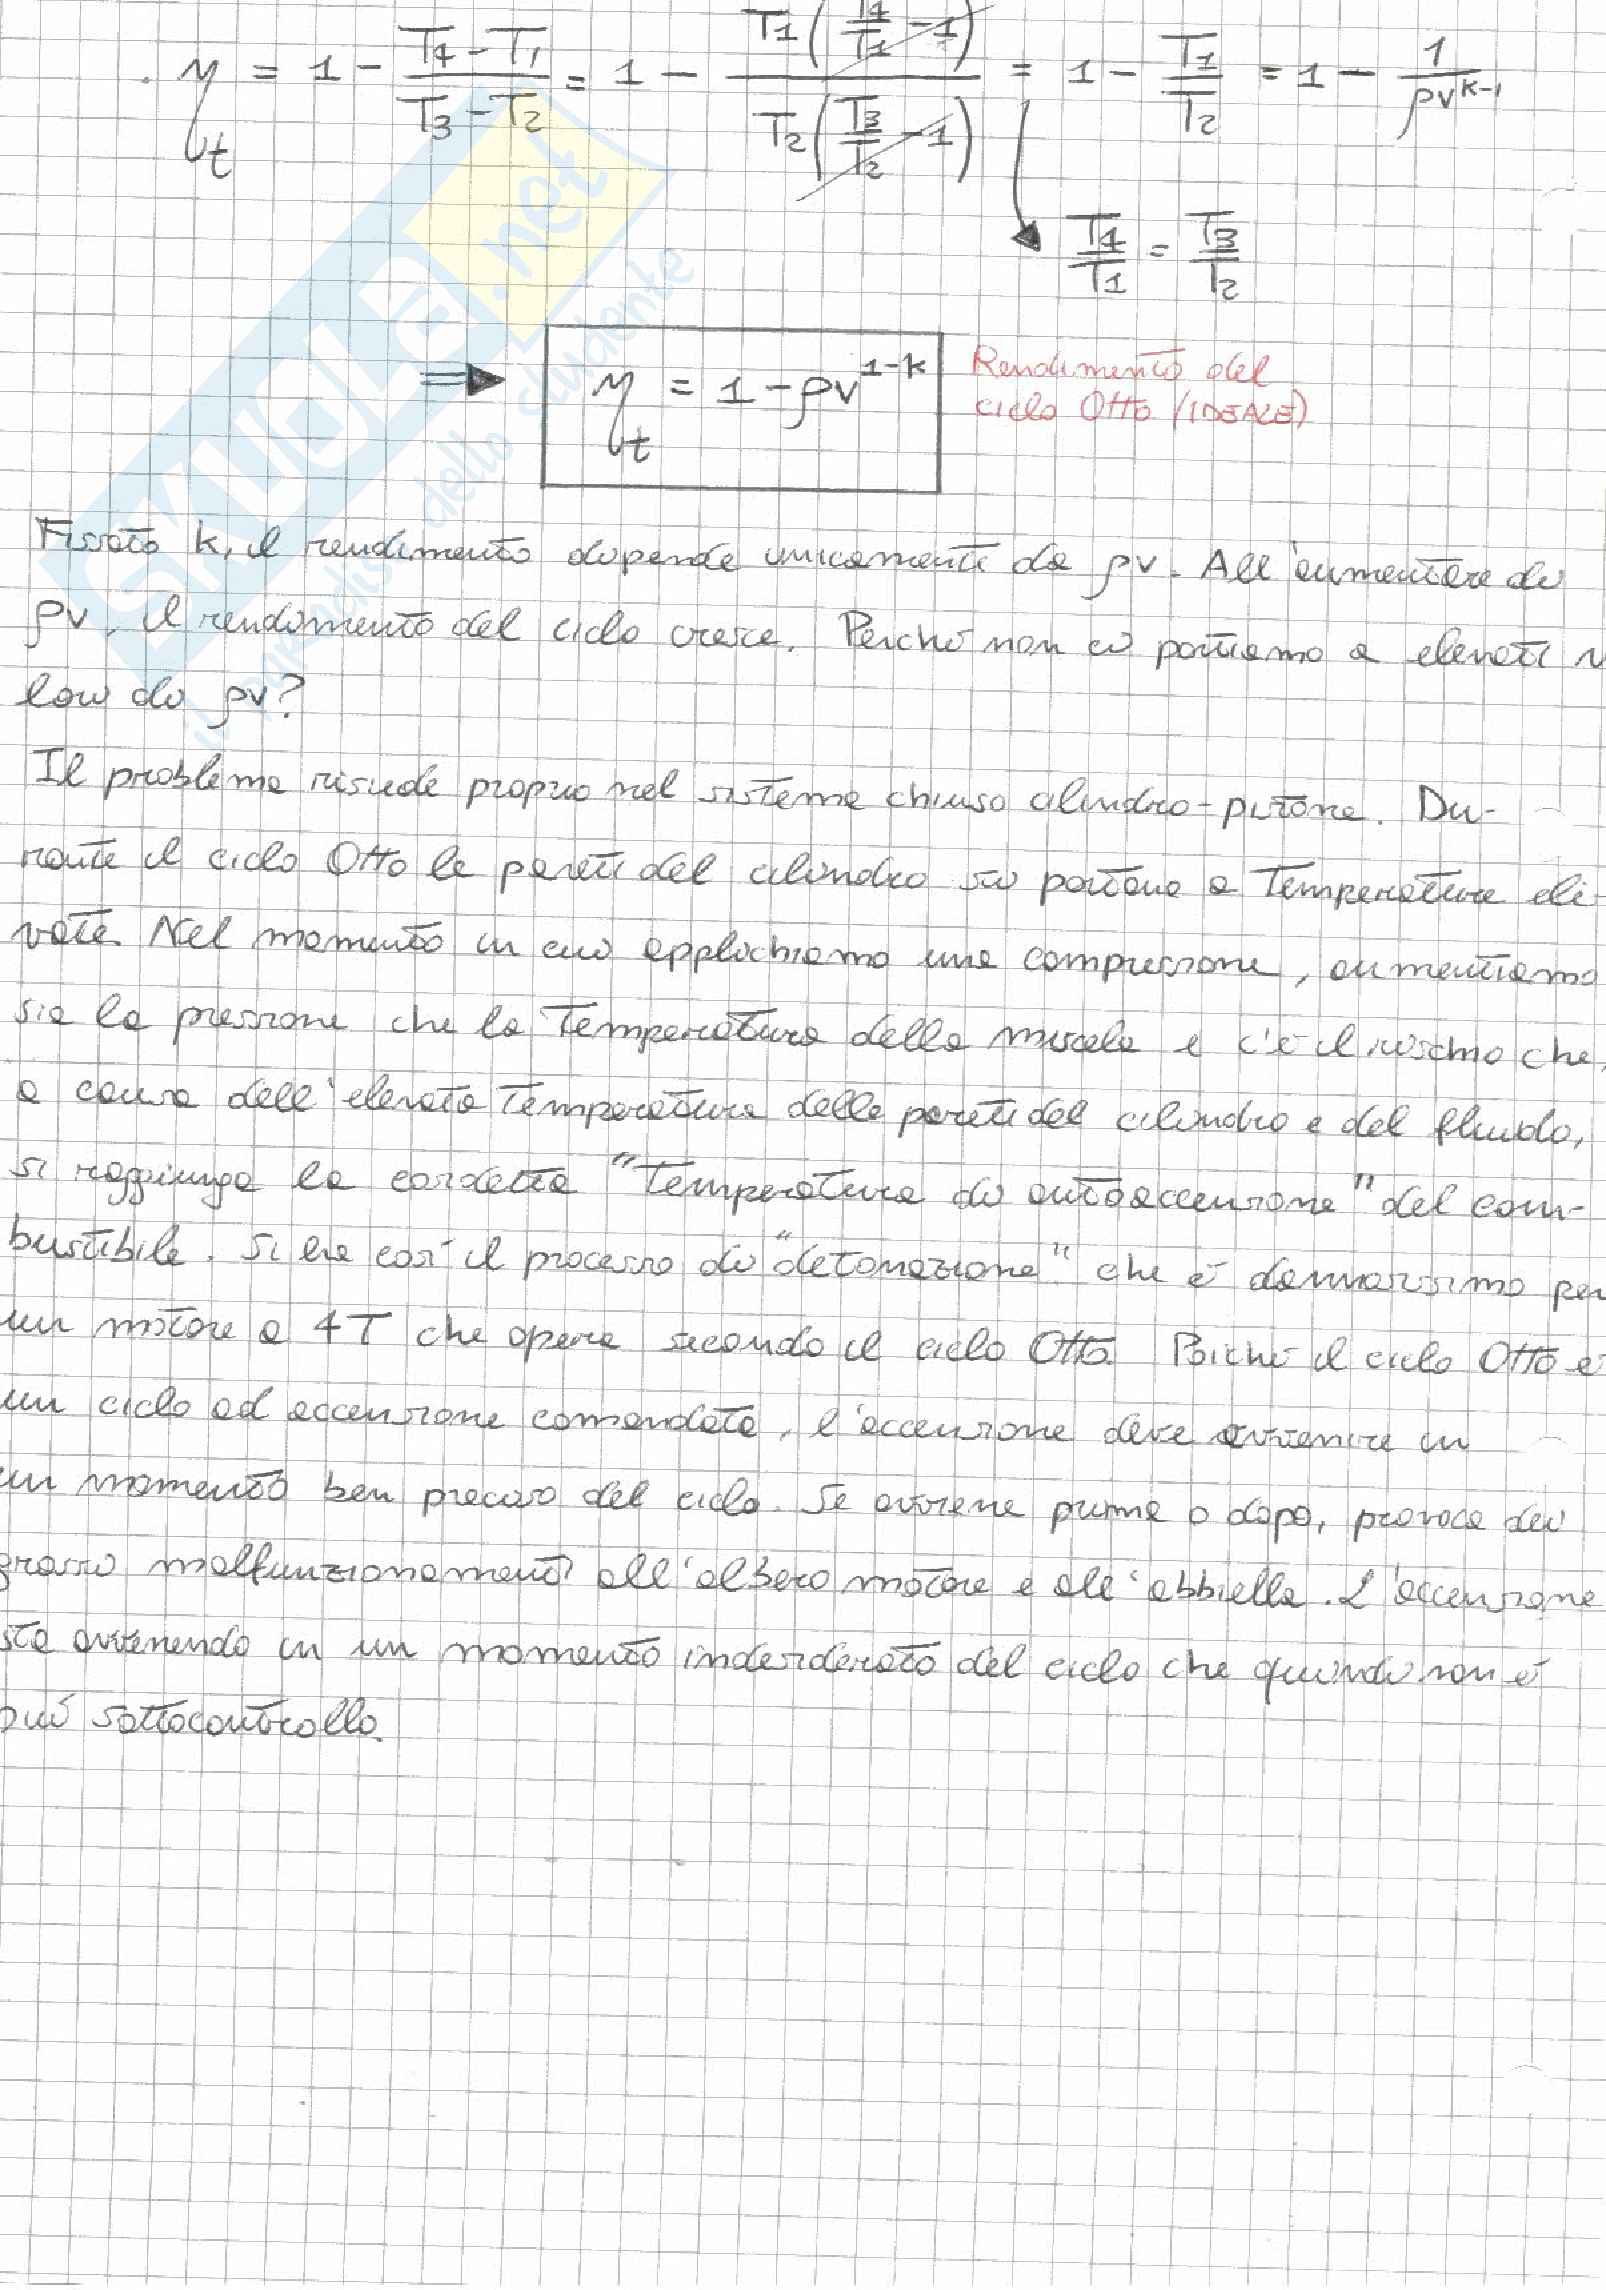 η_t = 1 - (T4 - T1)/(T3 - T2) = 1 - T1(T4/T1 - 1)/T2(T3/T2 - 1) = 1 - T1/T2 = 1 - 1/ρv^(k-1)
T4/T1 = T3/T2
⇒ η_t = 1 - ρv^(1-k) Rendimento del
ciclo Otto (IDEALE)
Fissato k, il rendimento dipende unicamente da ρv. All'aumentare di
ρv, il rendimento del ciclo cresce. Perché non ci portiamo a elevati v
lori di ρv?
Il problema risiede proprio nel sistema chiuso cilindro-pistone. Du-
rante il ciclo Otto le pareti del cilindro si portano a temperature ele-
vate. Nel momento in cui applichiamo una compressione, aumentiamo
sia la pressione che la temperatura della miscela e c'è il rischio che,
a causa dell'elevata temperatura delle pareti del cilindro e del fluido,
si raggiunga la cosidetta "temperatura di autoaccensione" del com-
bustibile. Si ha così il processo di "detonazione" che è dannosissimo per
un motore a 4T che opera secondo il ciclo Otto. Poiché il ciclo Otto è
un ciclo ad accensione comandata, l'accensione deve avvenire in
un momento ben preciso del ciclo. Se avviene prima o dopo, provoca dei
grossi malfunzionamenti all'albero motore e all'abbiella. L'accensione
sta avvenendo in un momento indesiderato del ciclo che quindi non è
più sottocontrollo.
SKUOLA.net
il paradiso dello studente